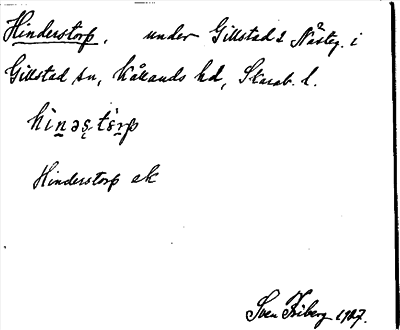 Hinderstorp, under Gillstad 2 Nåsteg. i
Gillstad sn, Kållands hd, Skarab. l.
hìnəs̨tèrp
Hinderstorp ak
Sven Friberg 1927.